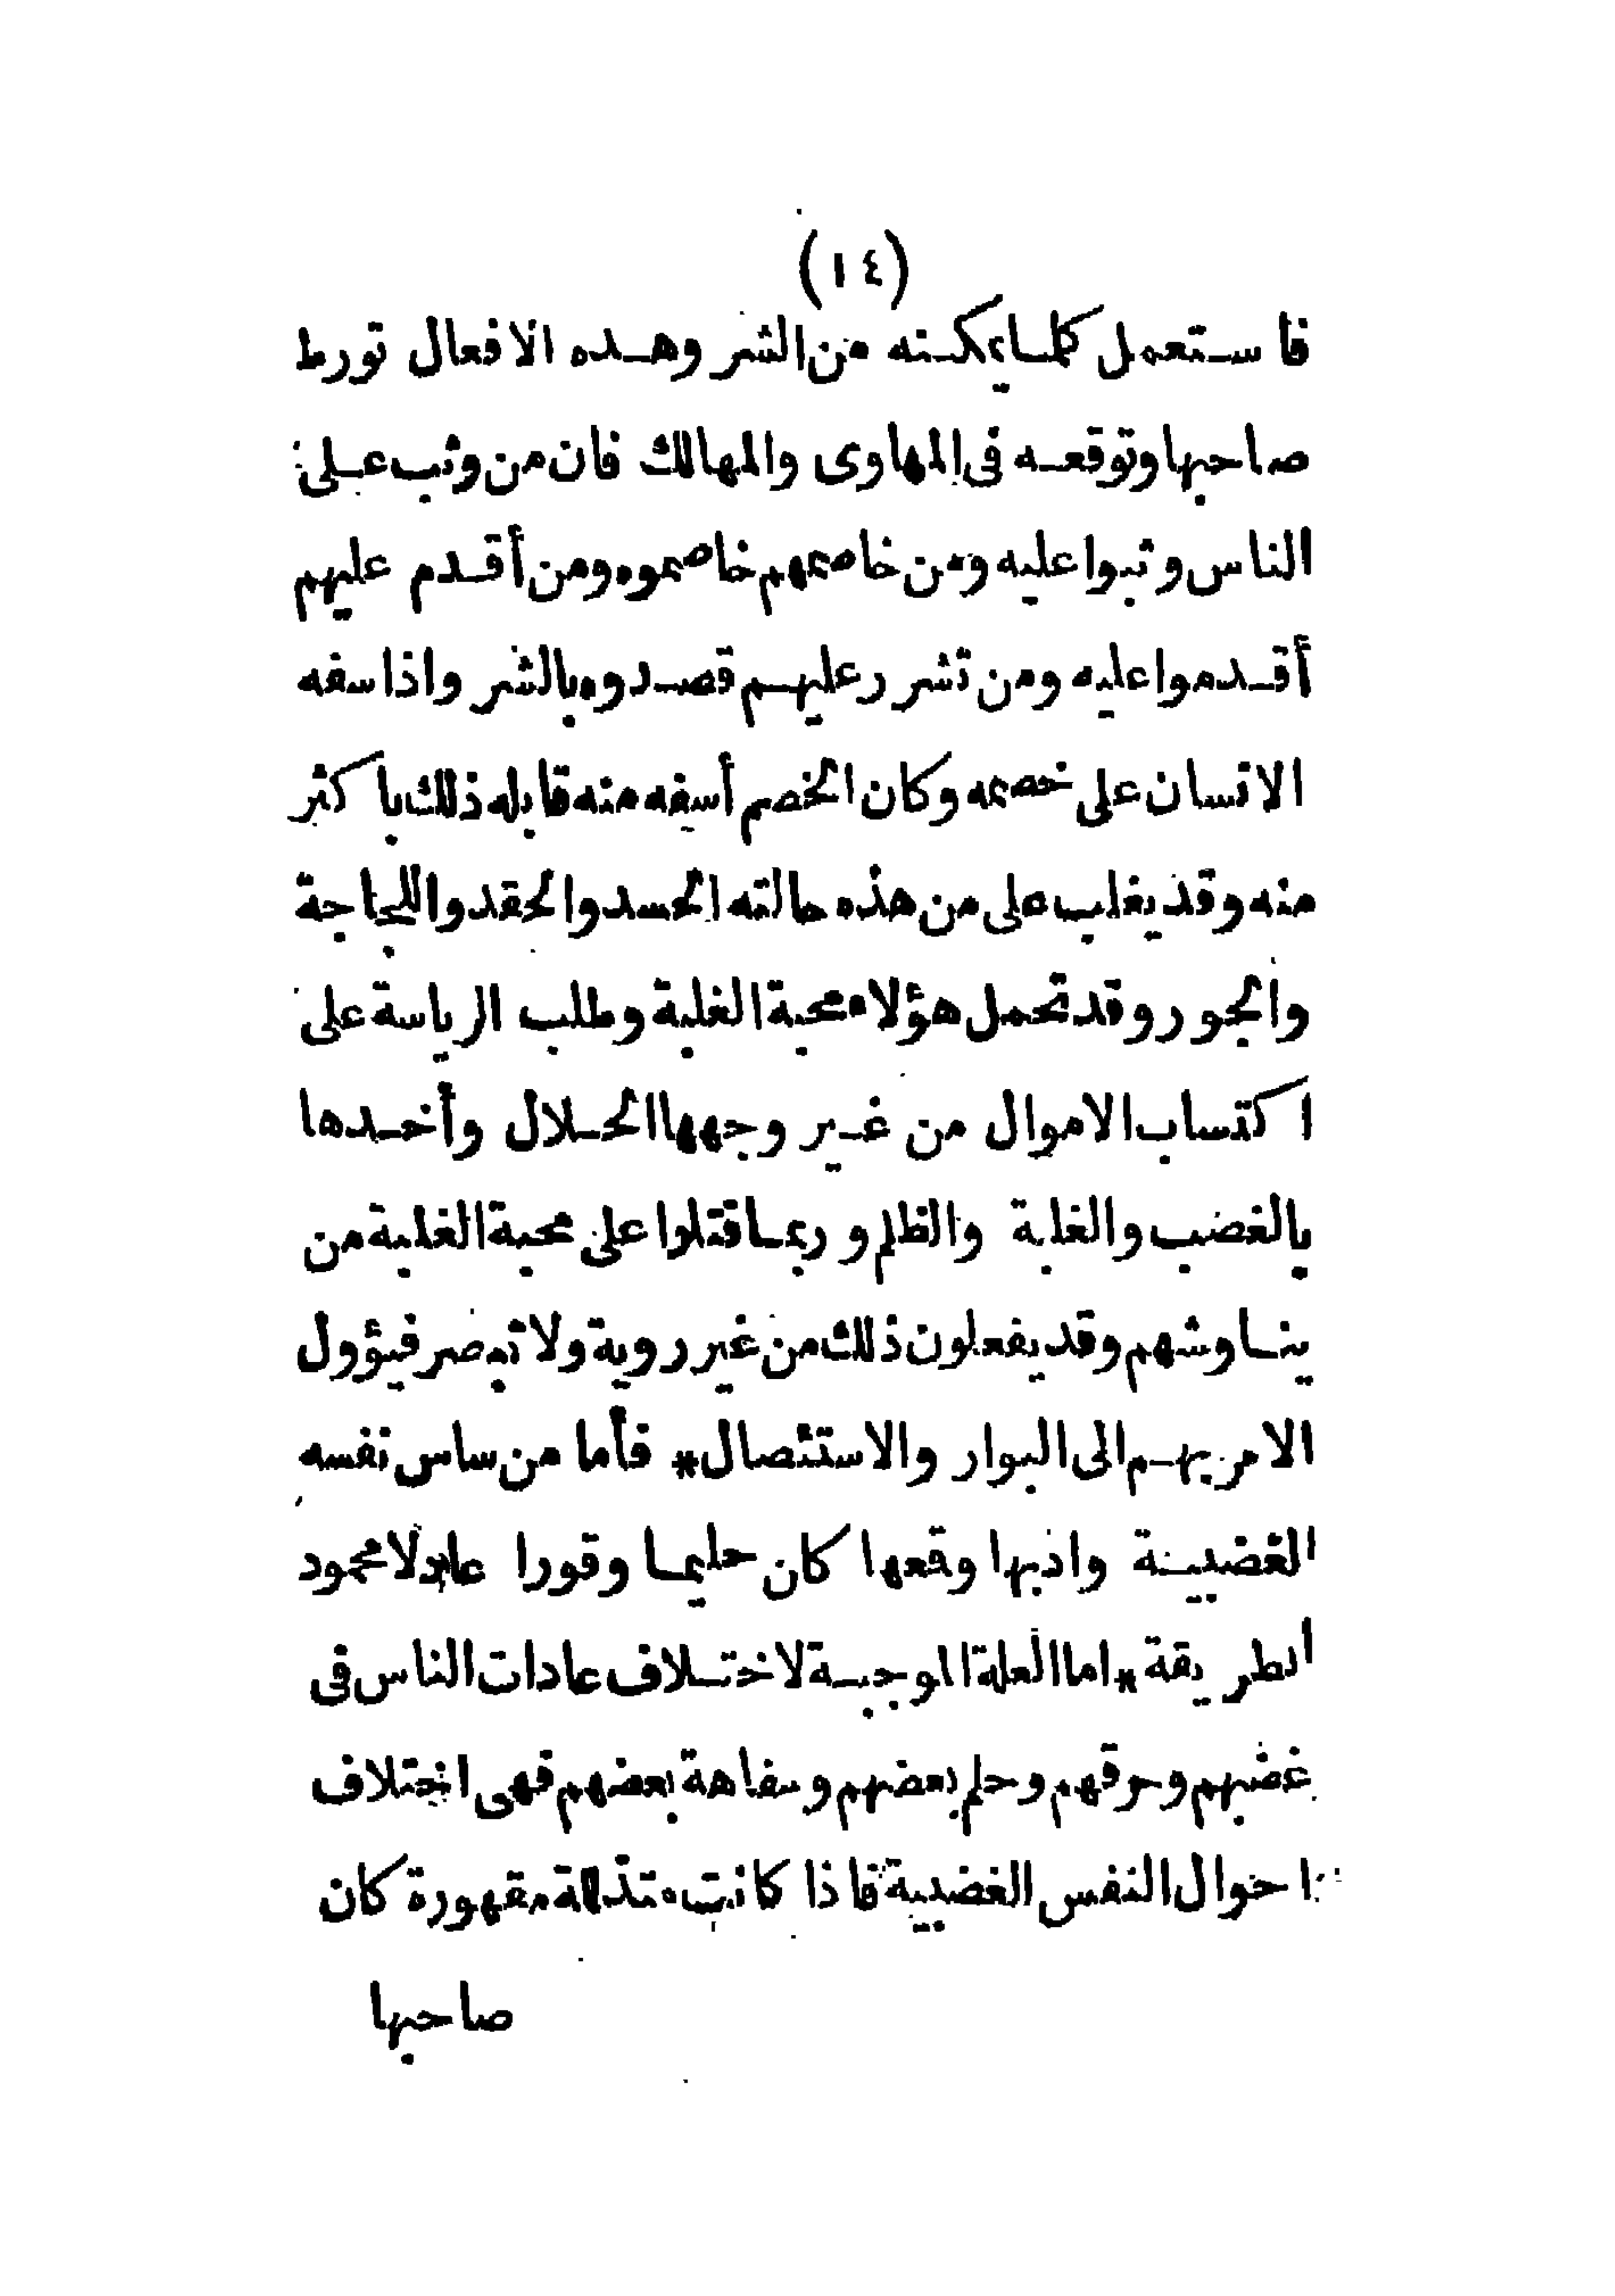 (١٤)
فاستعمل كلما يمكنه من الشر وهذه الافعال تورط
صاحبها وتوقعه فى المهاوى والمهالك فان من وثب على
الناس وثبوا عليه ومن خاصمهم خاصموه ومن أقدم عليهم
أقدموا عليه ومن تشرر عليهم قصدوه بالشر واذا سفه
الانسان على خصمه وكان الخصم أسفه منه قابله ذلك باكثر
منه وقد يغلب على من هذه حالته الحسد والحقد واللجاجة
والجور وقد تحمل هؤلاء محبة الغلبة وطلب الرياسة على
اكتساب الاموال من غير وجهها الحلال وأخذها
بالغضب والغلبة والظلم وربما قتلوا على محبة الغلبة من
يناوشهم وقد يفعلون ذلك من غير روية ولا تبصر فيؤول
الامر بهم الى البوار والاستئصال * فأما من ساس نفسه
الغضبية وادبها وقمعها كان حليما وقورا عادلا محمود
الطريقة * اما العلة الموجبة لاختلاف عادات الناس فى
غضبهم وحرقهم وحلم بعضهم وسفاهة بعضهم فهى اختلاف
احوال النفس الغضبية فاذا كانت متذللة مقهورة كان
صاحبها